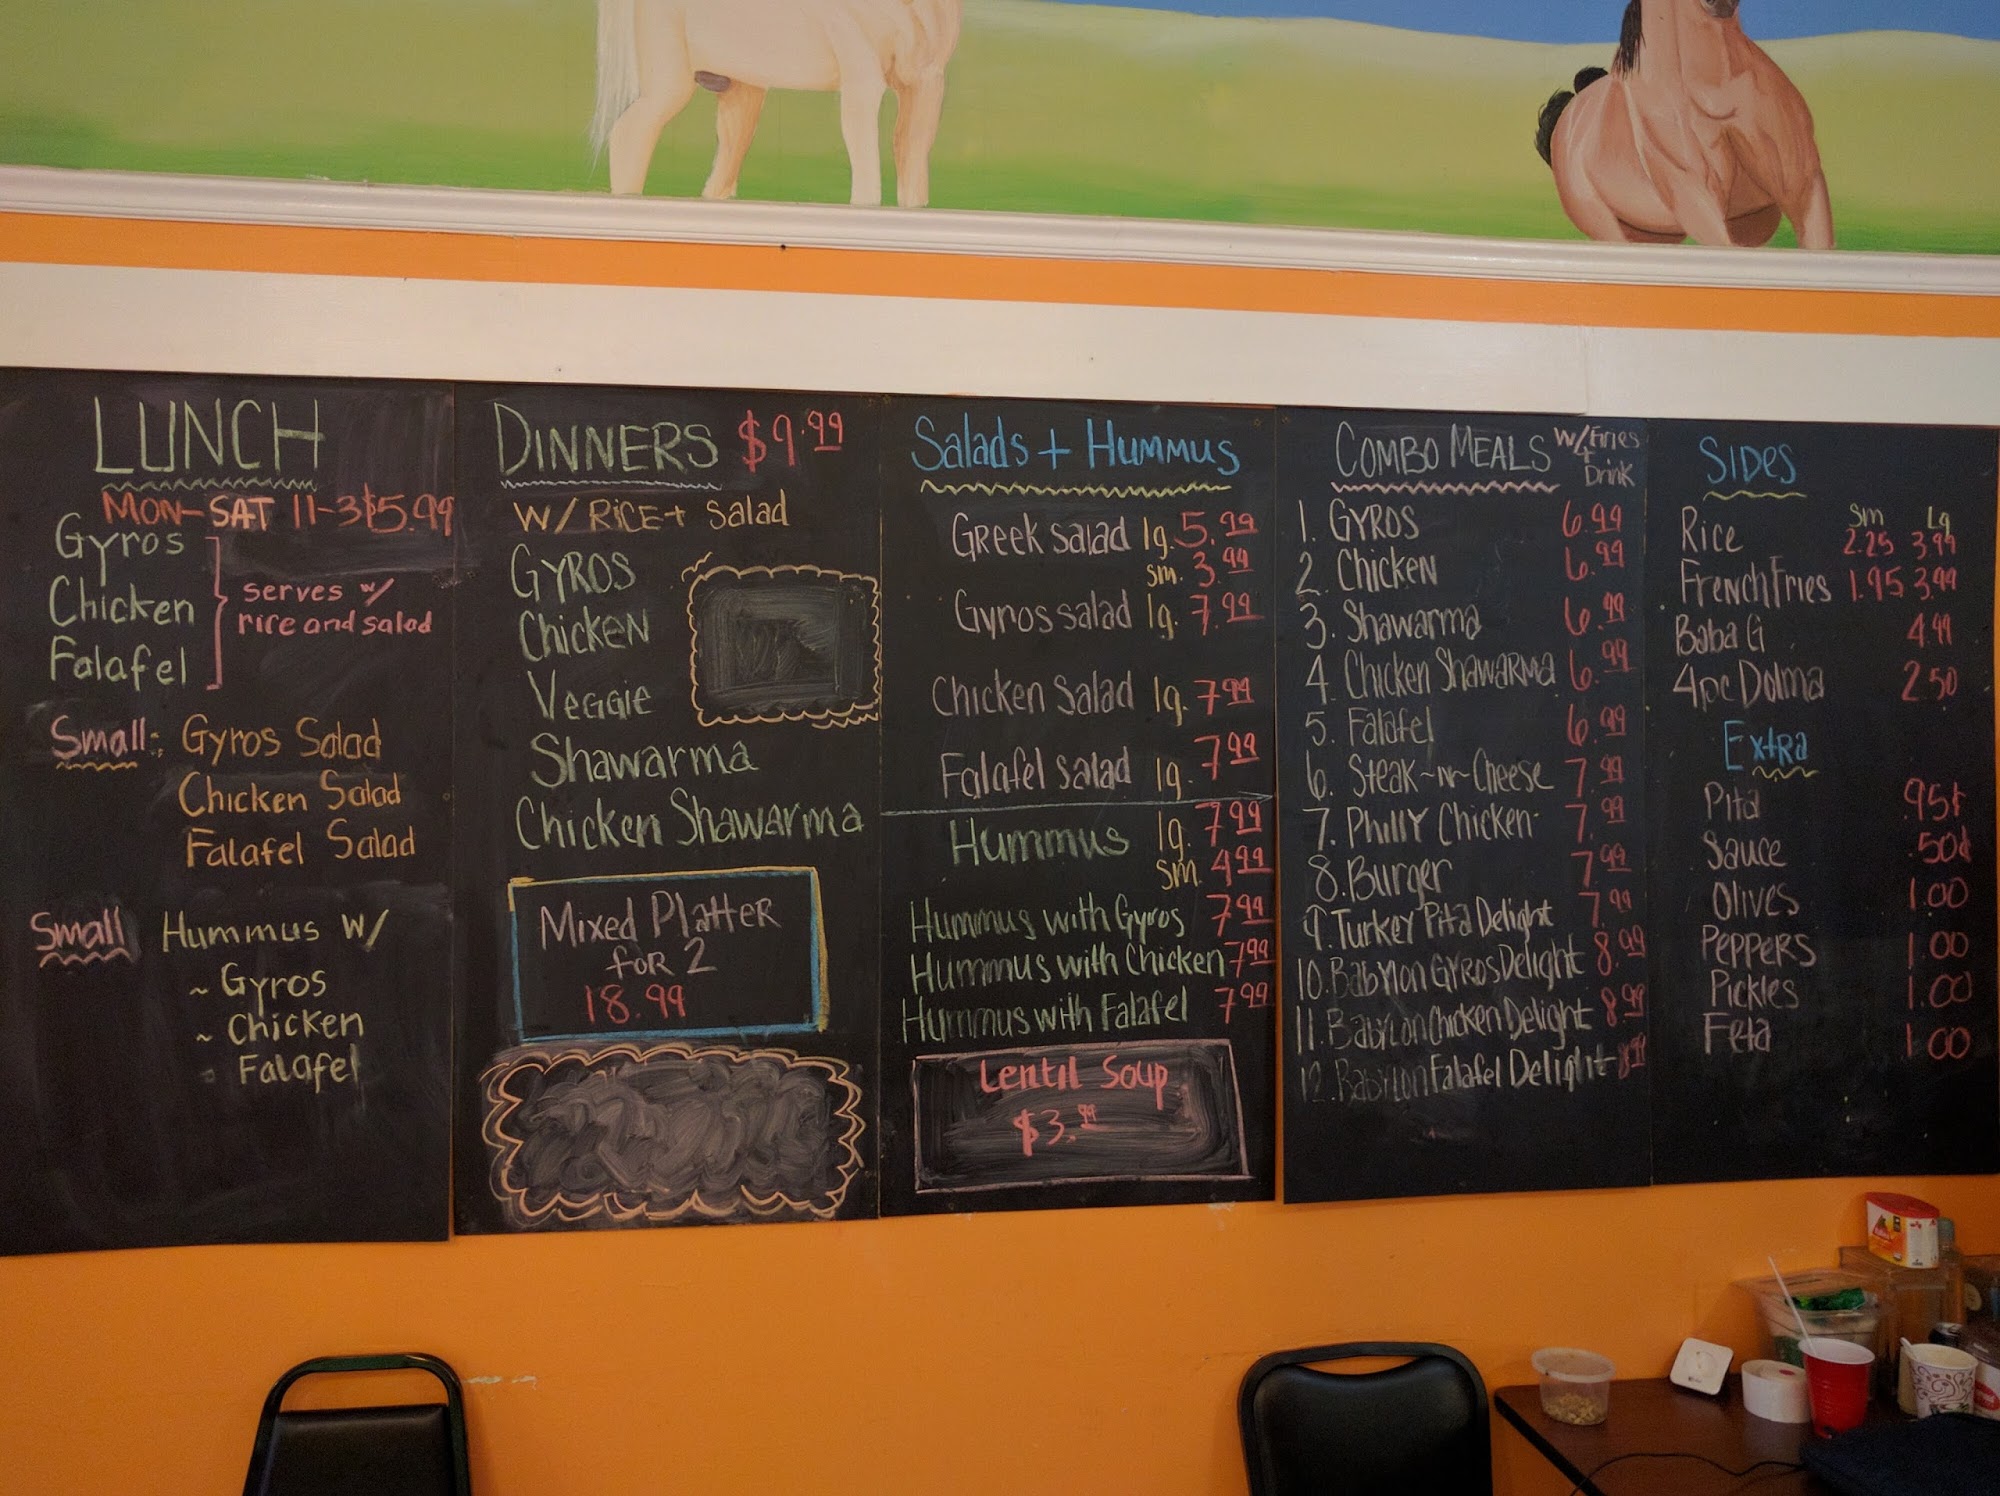 LUNCH
MON-SAT 11-3 $5.99
Gyros
Chicken
Falafel
serves w/
rice and salad
Small: Gyros Salad
Chicken Salad
Falafel Salad
Small Hummus w/
~ Gyros
~ Chicken
Falafel
DINNERS $9.99
W/ RICE + Salad
GYROS
Chicken
Veggie
Shawarma
Chicken Shawarma
Mixed Platter
for 2
18.99
Salads + Hummus
Greek salad lg. 5.99
sm. 3.99
Gyros salad lg. 7.99
Chicken Salad lg. 7.99
Falafel salad lg. 7.99
Hummus lg. 7.99
sm. 4.99
Hummus with Gyros 7.99
Hummus with Chicken 7.99
Hummus with Falafel 7.99
Lentil Soup
$3.99
COMBO MEALS w/ Fries + Drink
1. GYROS 6.99
2. Chicken 6.99
3. Shawarma 6.99
4. Chicken Shawarma 6.99
5. Falafel 6.99
6. Steak~n~Cheese 7.99
7. Philly Chicken 7.99
8. Burger 7.99
9. Turkey Pita Delight 7.99
10. Babylon Gyros Delight 8.99
11. Babylon Chicken Delight 8.99
12. Babylon Falafel Delight 8.99
SIDES
sm Lg
Rice 2.25 3.99
French Fries 1.95 3.99
Baba G 4.99
4pc Dolma 2.50
Extra
Pita .95¢
Sauce .50¢
Olives 1.00
Peppers 1.00
Pickles 1.00
Feta 1.00